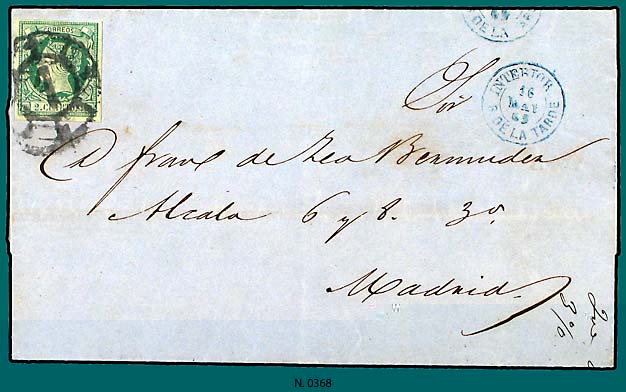 CORREOS
INTERIOR
16
MAY
65
DE LA TARDE
DE LA
Sor
Dn franco de Zea Bermudez
Alcala 6 y 8. 3o
Madrid
N. 0368